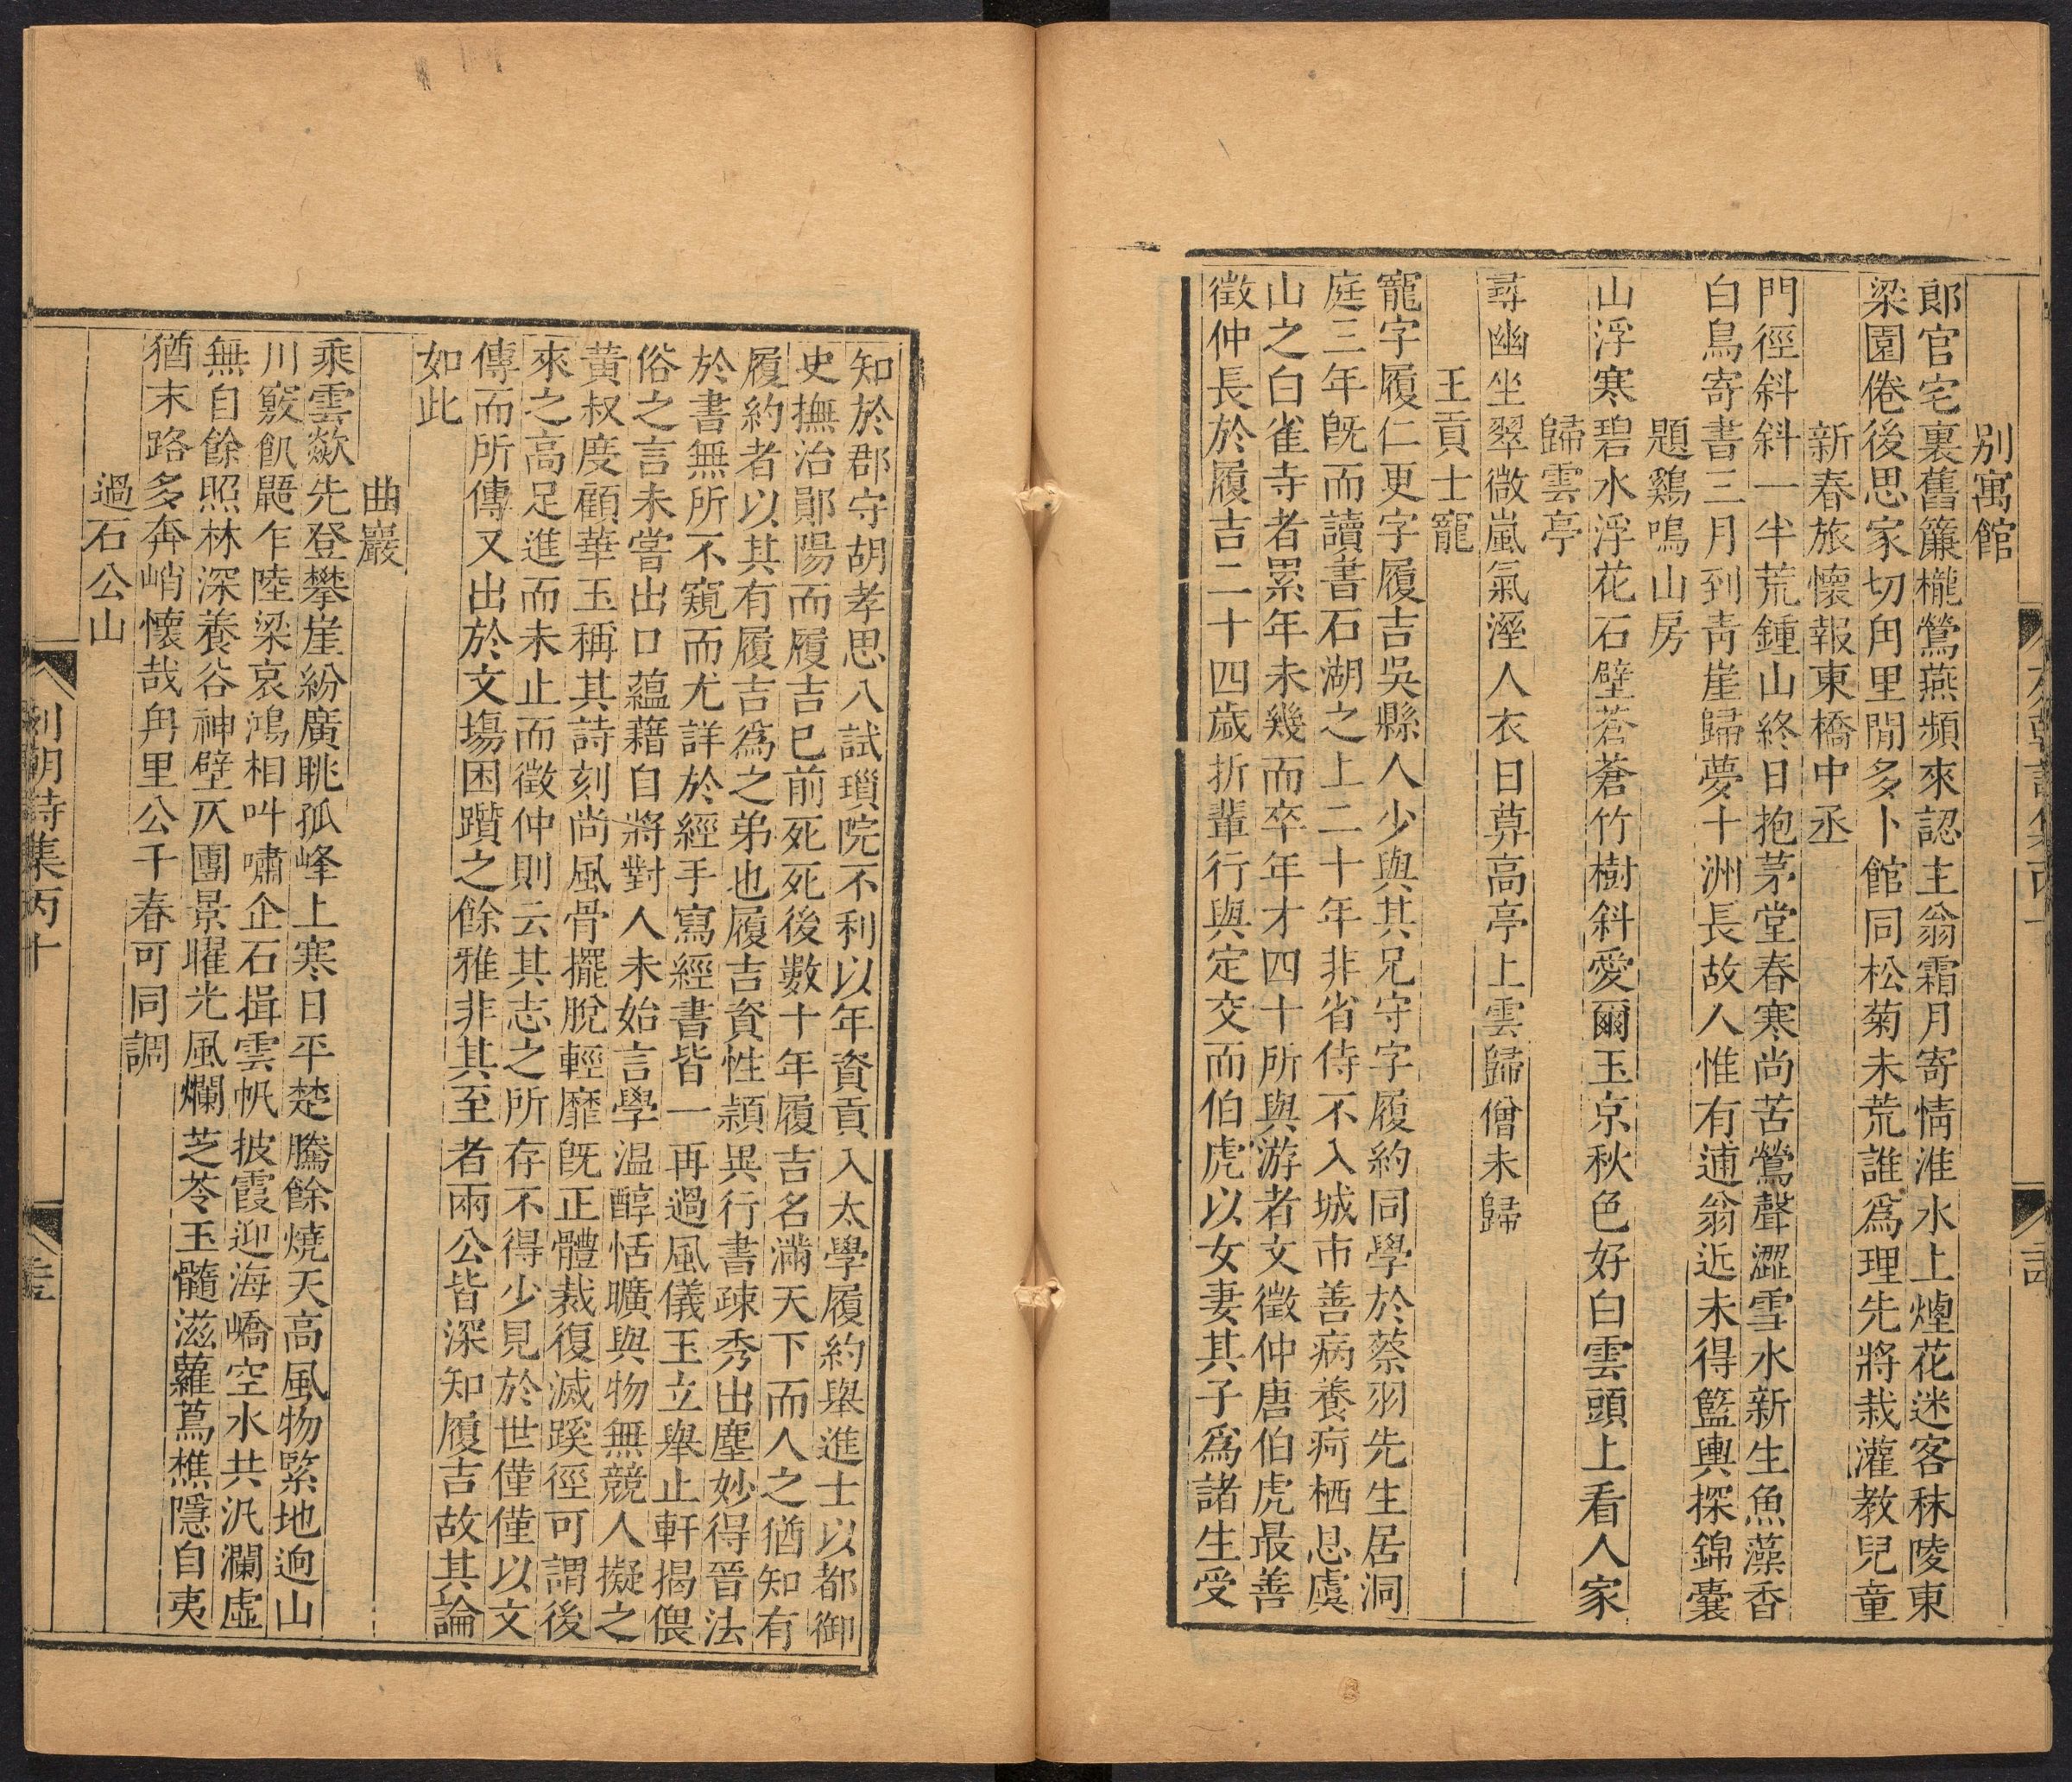 別寓館
郎官宅裏舊簾櫳鶯燕頻來認主翁霜月寄情淮水上煙花迷客秣陵東
梁園倦後思家切甪里閒多卜館同松菊未荒誰爲理先將栽灌教兒童
新春旅懷報東橋中丞
門徑斜斜一半荒鍾山終日抱茅堂春寒尚苦鶯聲澀雪水新生魚藻香
白鳥寄書三月到靑崖歸夢十洲長故人惟有逋翁近未得籃輿探錦囊
題鷄鳴山房
山浮寒碧水浮花石壁蒼蒼竹樹斜愛爾玉京秋色好白雲頭上看人家
歸雲亭
尋幽坐翠微嵐氣溼人衣日莫高亭上雲歸僧未歸
王貢士寵
寵字履仁更字履吉吳縣人少與其兄守字履約同學於蔡羽先生居洞
庭三年旣而讀書石湖之上二十年非省侍不入城市善病養疴栖息虞
山之白雀寺者累年未幾而卒年才四十所與游者文徵仲唐伯虎最善
徵仲長於履吉二十四歲折輩行與定交而伯虎以女妻其子爲諸生受
知於郡守胡孝思八試瑣院不利以年資貢入太學履約舉進士以都御
史撫治鄖陽而履吉已前死死後數十年履吉名滿天下而人之猶知有
履約者以其有履吉爲之弟也履吉資性頴異行書疎秀出塵妙得晉法
於書無所不窺而尤詳於經手寫經書皆一再過風儀玉立舉止軒揭偎
俗之言未嘗出口蘊藉自將對人未始言學温醇恬曠與物無競人擬之
黃叔度顧華玉稱其詩刻尚風骨擺脫輕靡旣正體裁復滅蹊徑可謂後
來之高足進而未止而徵仲則云其志之所存不得少見於世僅僅以文
傳而所傳又出於文場困躓之餘雅非其至者兩公皆深知履吉故其論
如此
曲巖
乘雲歘先登攀崖紛廣眺孤峰上寒日平楚騰餘燒天高風物緊地逈山
川竅飢鼯乍陸梁哀鴻相叫嘯企石揖雲帆披霞迎海嶠空水共汎瀾虛
無自餘照林深養谷神壁仄團景曜光風爛芝苓玉髓滋蘿蔦樵隱自夷
猶末路多奔峭懷哉甪里公千春可同調
過石公山
列朝詩集丙十